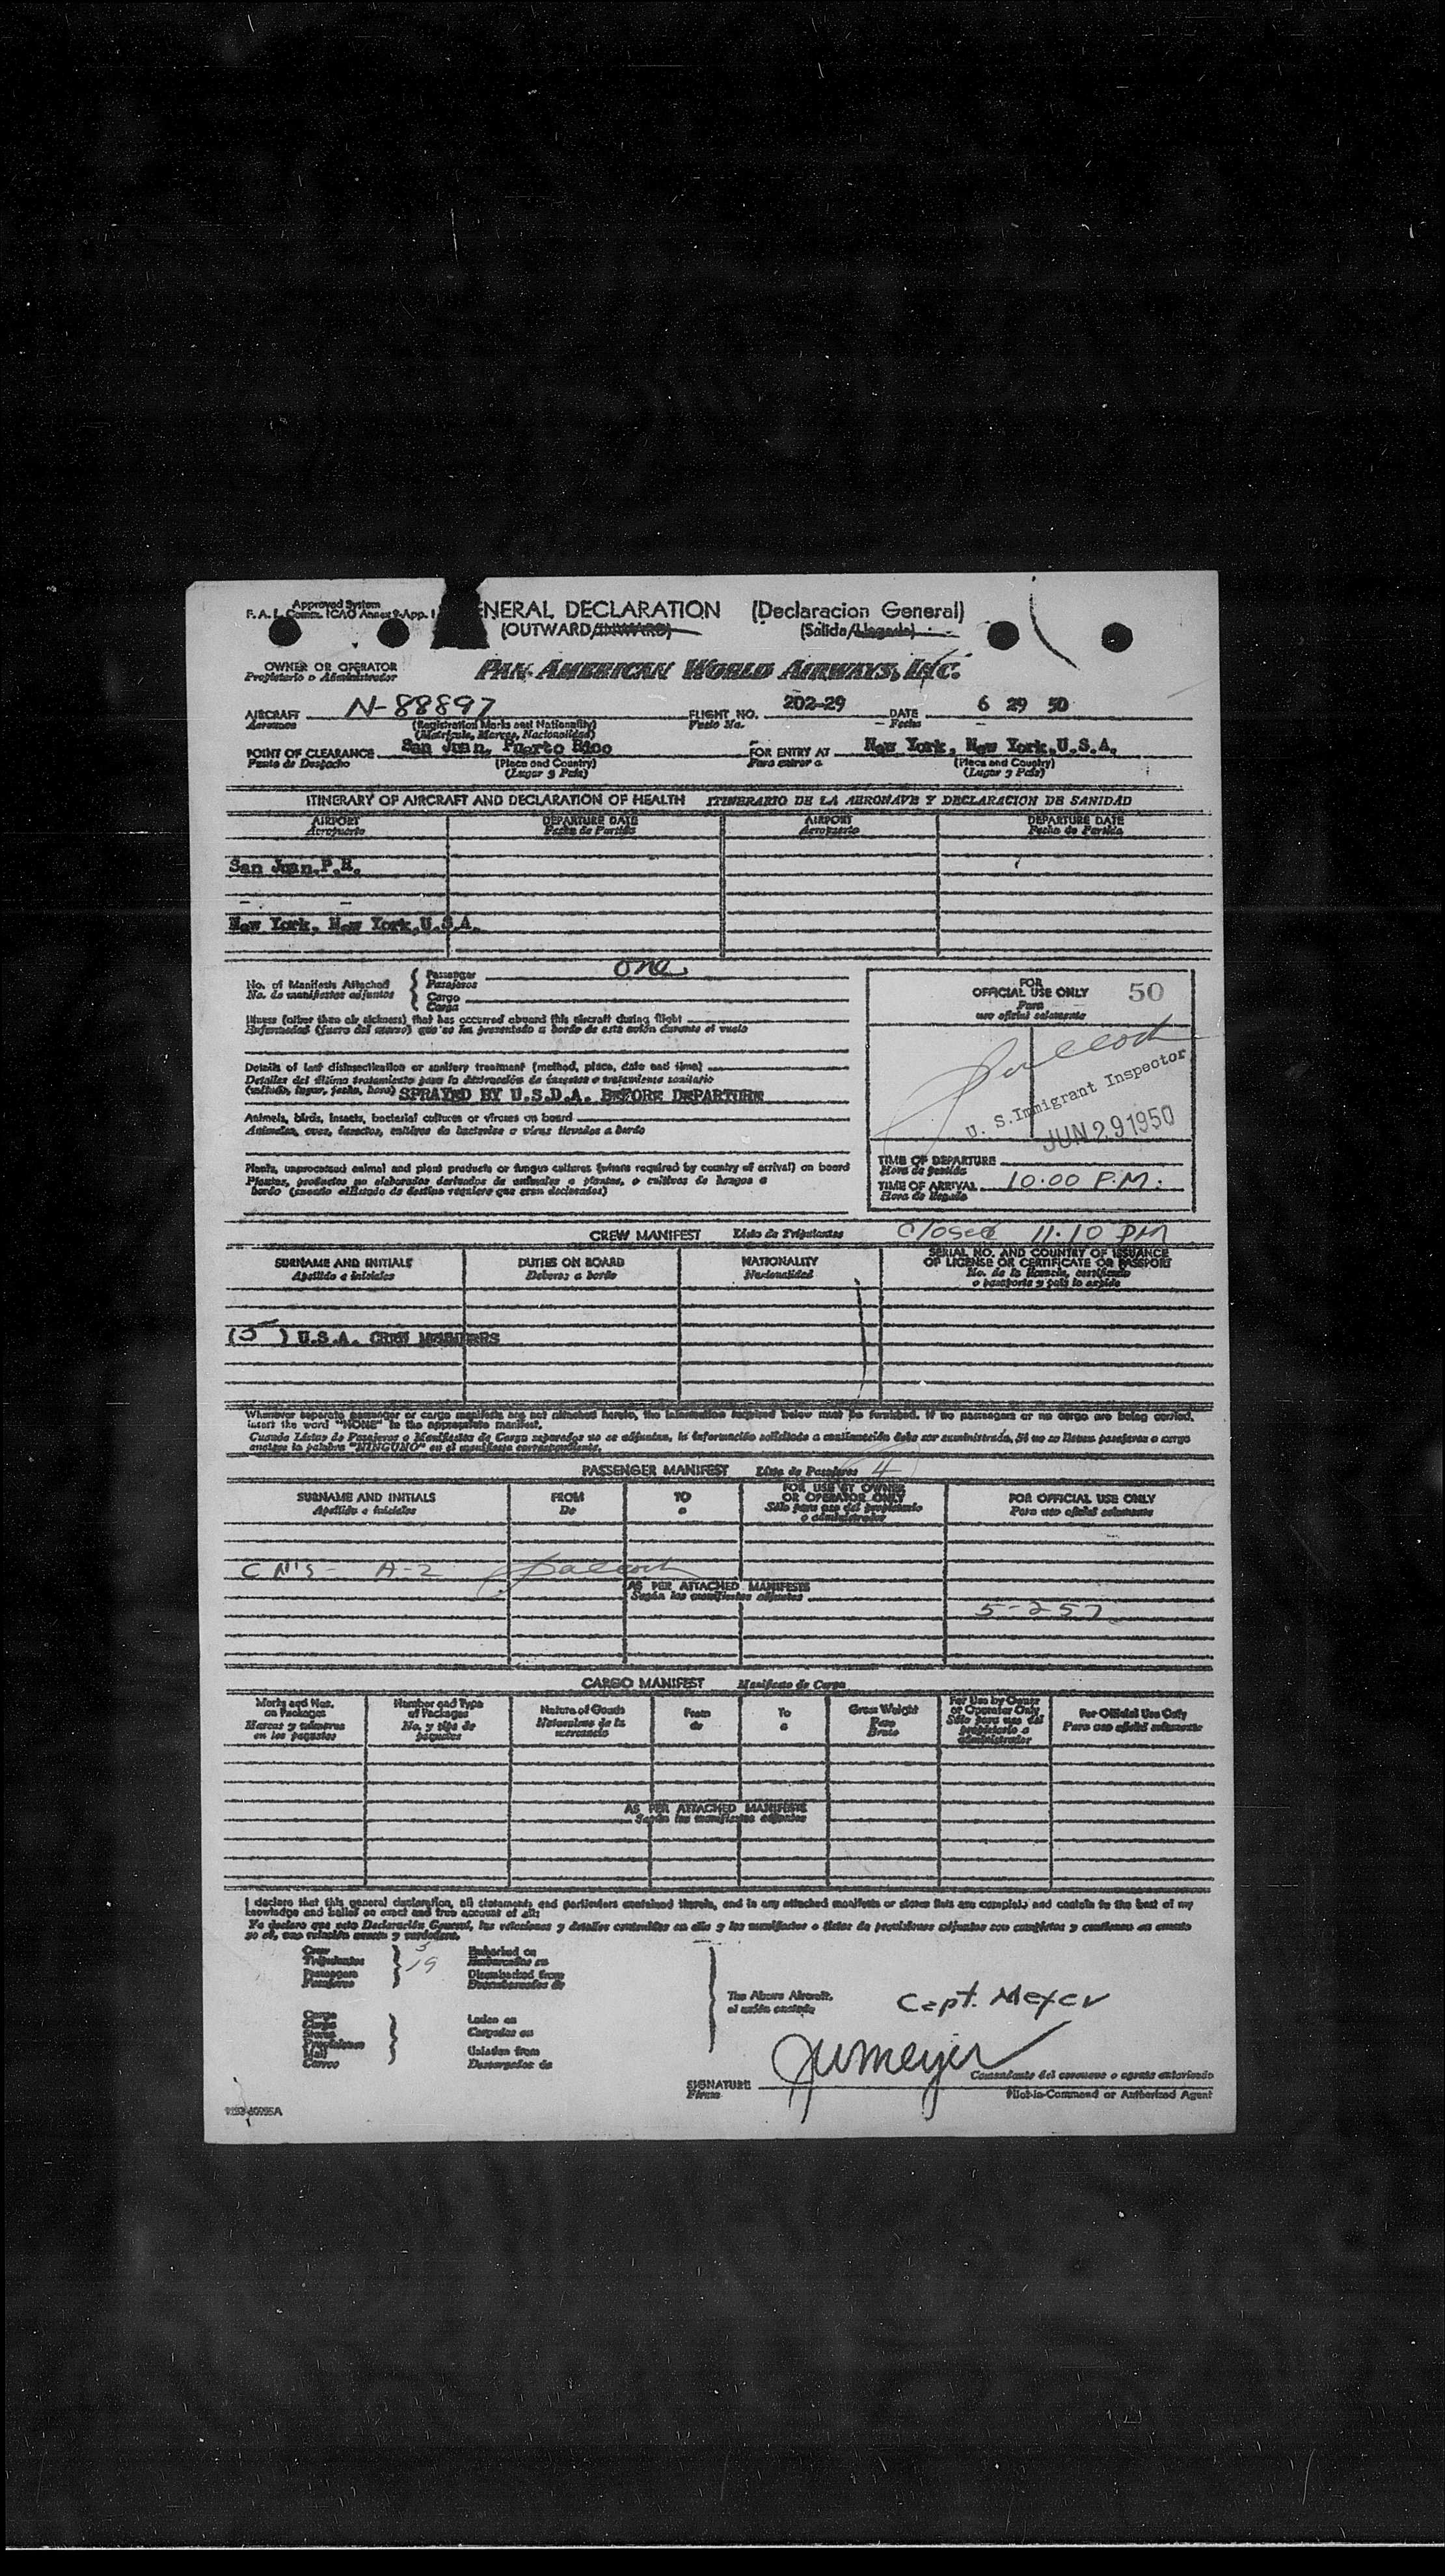 Approved System
F. A. L. Comm. ICAO Annex 9-App. 1
ENERAL DECLARATION (Declaracion General)
(OUTWARD/INWARD) (Salida/Llegada)
OWNER OR OPERATOR
Propietario o Administrador
PAN AMERICAN WORLD AIRWAYS, INC.
AIRCRAFT N-88897 FLIGHT NO. 202-29 DATE 6 29 50
Aeronave (Registration Marks and Nationality) Vuelo No. Fecha
(Matricula, Marcas, Nacionalidad)
POINT OF CLEARANCE San Juan, Puerto Rico FOR ENTRY AT New York, New York,U.S.A.
Punto de Despacho (Place and Country) Para entrar a (Place and Country)
(Lugar y País) (Lugar y País)
ITINERARY OF AIRCRAFT AND DECLARATION OF HEALTH ITINERARIO DE LA AERONAVE Y DECLARACION DE SANIDAD
AIRPORT DEPARTURE DATE AIRPORT DEPARTURE DATE
Aeropuerto Fecha de Partida Aeropuerto Fecha de Partida
San Juan.P.R.
New York, New York,U.S.A.
No. of Manifests Attached Passenger one
No. de manifiestos adjuntos Pasajeros
Cargo
Carga
Illness (other than air sickness) that has occurred aboard this aircraft during flight
Enfermedad (fuera del mareo) que se ha presentado a bordo de este avión durante el vuelo
Details of last disinsectization or sanitary treatment (method, place, date and time)
Detalles del último tratamiento para la destrucción de insectos o tratamiento sanitario
(método, lugar, fecha, hora) SPRAYED BY U.S.D.A. BEFORE DEPARTURE
Animals, birds, insects, bacterial cultures or viruses on board
Animales, aves, insectos, cultivos de bacterias o virus llevados a bordo
Plants, unprocessed animal and plant products or fungus cultures (where required by country of arrival) on board
Plantas, productos no elaborados derivados de animales o plantas, o cultivos de hongos a
bordo (cuando el Estado de destino requiere que sean declarados)
FOR
OFFICIAL USE ONLY 50
Para
uso oficial solamente
U. S. Immigrant Inspector
JUN 29 1950
TIME OF DEPARTURE
Hora de partida
TIME OF ARRIVAL 10:00 P.M.
Hora de llegada
Closed 11:10 PM
CREW MANIFEST Lista de Tripulantes
SURNAME AND INITIALS DUTIES ON BOARD NATIONALITY SERIAL NO. AND COUNTRY OF ISSUANCE
OF LICENSE OR CERTIFICATE OR PASSPORT
Apellido e iniciales Deberes a bordo Nacionalidad No. de la licencia, certificado
o pasaporte y país lo expide
(5) U.S.A. CREW MEMBERS
Whenever separate passenger or cargo manifests are not attached hereto, the information required below must be furnished. If no passengers or no cargo are being carried,
insert the word "NONE" in the appropriate manifest.
Cuando Listas de Pasajeros o Manifiestos de Carga separados no se adjuntan, la información solicitada a continuación debe ser suministrada. Si no se llevan pasajeros o carga
anótese la palabra "NINGUNO" en el manifiesto correspondiente.
PASSENGER MANIFEST Lista de Pasajeros 4
SURNAME AND INITIALS FROM TO FOR USE BY OWNER
OR OPERATOR ONLY FOR OFFICIAL USE ONLY
Apellido e iniciales De a Sólo para uso del propietario
o administrador Para uso oficial solamente
A-2
AS PER ATTACHED MANIFESTS
Según los manifiestos adjuntos
5-257
CARGO MANIFEST Manifiesto de Carga
Marks and Nos.
on Packages
Marcas y números
en los paquetes
Number and Type
of Packages
No. y tipo de
paquetes
Nature of Goods
Naturaleza de la
mercancía
From
de
To
a
Gross Weight
Peso
Bruto
For Use by Owner
or Operator Only
Sólo para uso del
propietario o
administrador
For Official Use Only
Para uso oficial solamente
AS PER ATTACHED MANIFESTS
Según los manifiestos adjuntos
I declare that this general declaration, all statements and particulars contained therein, and in any attached manifests or stores lists are complete and contain to the best of my
knowledge and belief an exact and true account of all:
Yo declaro que esta Declaración General, las relaciones y detalles contenidos en ella y los manifiestos o listas de provisiones adjuntos son completos y contienen en cuanto
yo sé, una relación exacta y verdadera.
Crew 5 Embarked on
Tripulantes 19 Embarcados en
Passengers Disembarked from
Pasajeros Desembarcados de
Cargo
Carga Laden on
Stores Cargados en
Provisiones
Mail Unladen from
Correo Descargados de
The Above Aircraft.
el avión anotado
Capt. Meyer
SIGNATURE JWMeyer
Firma
Comandante del aeronave o agente autorizado
Pilot-in-Command or Authorized Agent